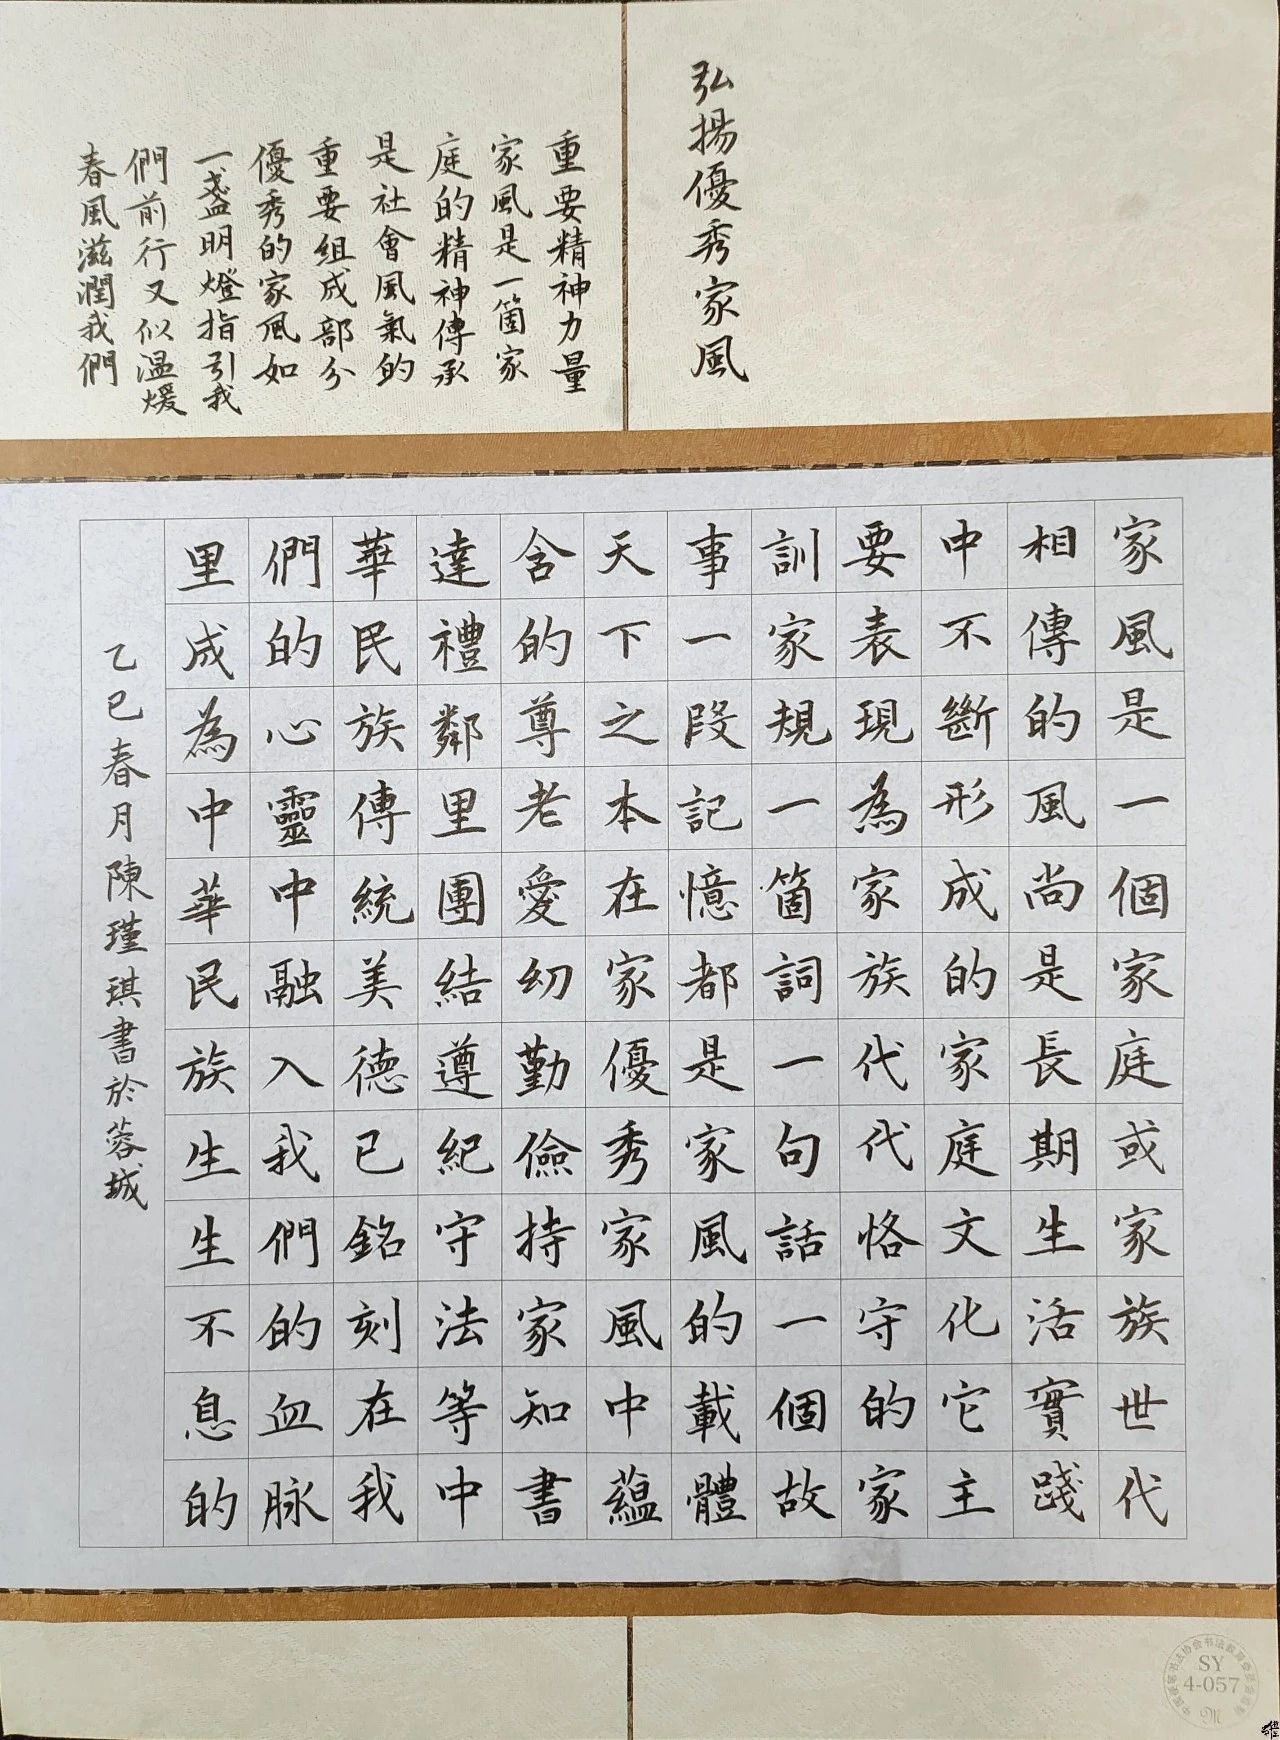 弘揚優秀家風
家風是一個家庭或家族世代
相傳的風尚是長期生活實踐
中不斷形成的家庭文化它主
要表現為家族代代恪守的家
訓家規一箇詞一句話一個故
事一段記憶都是家風的載體
天下之本在家優秀家風中蘊
含的尊老愛幼勤儉持家知書
達禮鄰里團結遵紀守法等中
華民族傳統美德已銘刻在我
們的心靈中融入我們的血脉
里成為中華民族生生不息的
重要精神力量
家風是一箇家
庭的精神傳承
是社會風氣的
重要組成部分
優秀的家风如
一盞明燈指引我
們前行又似温煖
春風滋潤我們
乙巳春月陳瑾琪書於蓉城
SY
4-057